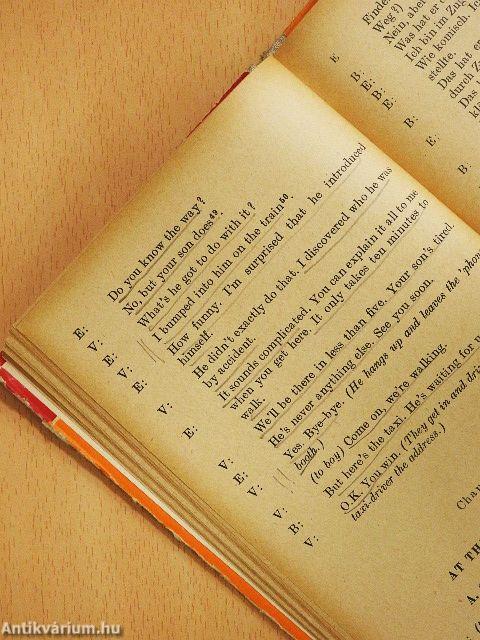 E: Do you know the way?
V: No, but your son does⁴⁹.
E: What's he got to do with it?
V: I bumped into him on the train⁵⁰.
E: How funny. I'm surprised that he introduced
himself.
V: He didn't exactly do that. I discovered who he was
by accident.
E: It sounds complicated. You can explain it all to me
when you get here. It only takes ten minutes to
walk.
V: We'll be there in less than five. Your son's tired.
E: He's never anything else. See you soon.
V: Yes. Bye-bye. (He hangs up and leaves the 'phone
booth.)
V: (to boy) Come on, we're walking.
B: But here's the taxi. He's waiting for
V: O.K. You win. (They get in and
taxi-driver the address.)
AT
A.
Nein, aber
Weg?)
Was hat er
E Ich bin im Zug
B: Wie komisch.
stellte.
E: Das hat er
durch
B: Das
E:
B:
Antikvárium.hu